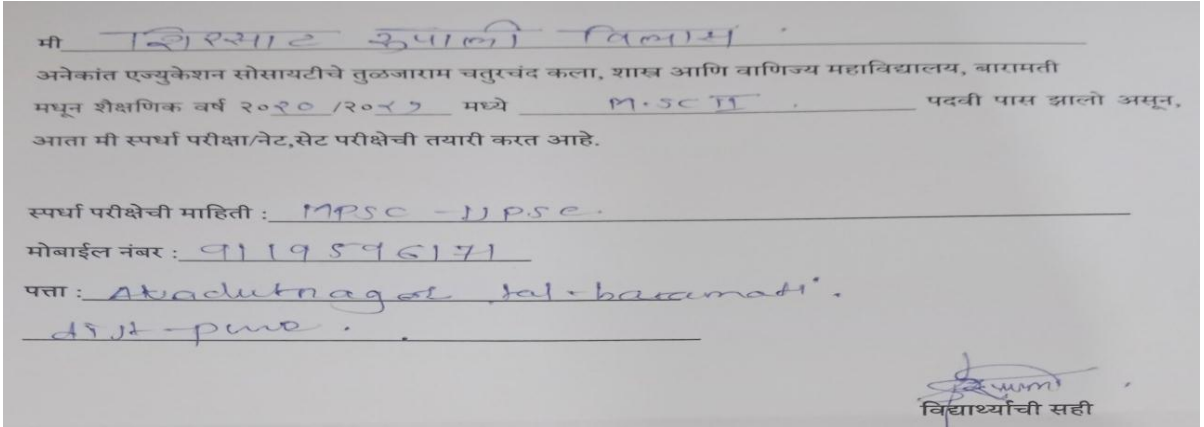 मी शिरसाट रुपाली विलास .
अनेकांत एज्युकेशन सोसायटीचे तुळजाराम चतुरचंद कला, शास्त्र आणि वाणिज्य महाविद्यालय, बारामती
मधून शैक्षणिक वर्ष २०२० /२०२१ मध्ये M.SC II . पदवी पास झालो असून,
आता मी स्पर्धा परीक्षा/नेट,सेट परीक्षेची तयारी करत आहे.
स्पर्धा परीक्षेची माहिती : MPSC - UPSC.
मोबाईल नंबर : 9119596171
पत्ता : Avadutnagar tal - baramati .
dist - pune .
विद्यार्थ्याची सही